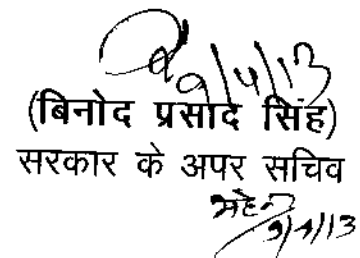 9/4/13
(बिनोद प्रसाद सिंह)
सरकार के अपर सचिव
महेन्द्र
9/4/13